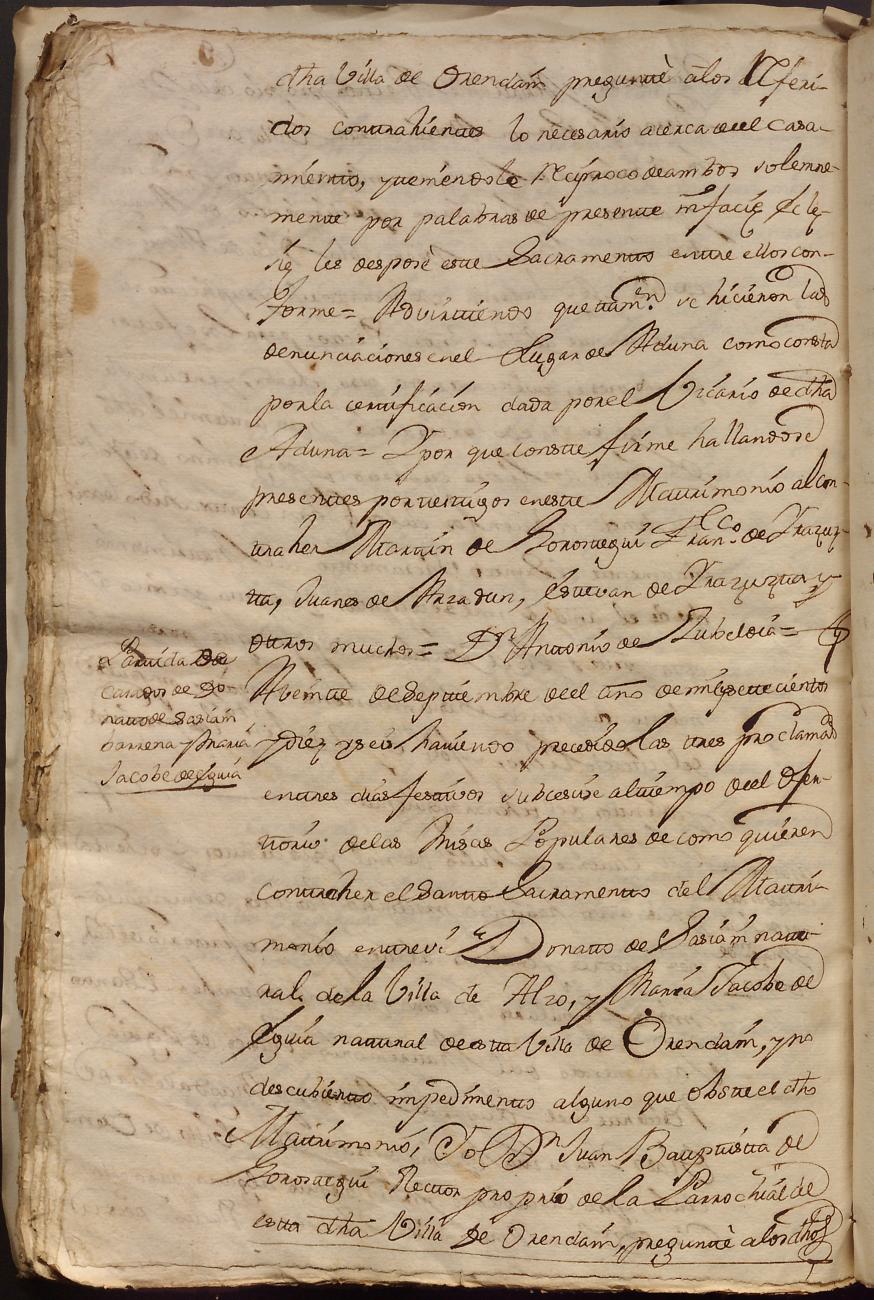 dha Villa de Orendaín preguntè a los referi-
dos contrahientes lo necesario acerca de el Casa-
miento, y teniendole reciproco de ambos solemne-
mente por palabras de presente in facie Ecle-
sie les desposè este Sacramento entre ellos con-
forme= Advirtiendo que tamn. se hicieron las
denunciaciones en el Lugar de Aduna como consta
por la certificacion dada por el Vicario de dha
Aduna= Y por que conste firme hallandose
presentes por testigos en este Matrimonio al con-
traher Martin de Gorostegui Franco. de Yrazuz-
ta, Juanes de Arzadun, Estevan de Yrazuzta y
otros muchos= Dn Antonio de Zubeldia=
Partida de
casados de Do-
nato de Sasiaín
barrena y Maria
Jacobe de Eguia
A veinte de Septiembre de el año de mil y setecientos
y diez y seis haviendo precedido las tres proclamas
en tres dias festivos subcesive al tiempo de el Ofer-
torio de las Misas Populares de como quieren
contraher el Santo Sacramento del Matri-
monio entre si Donatto de Sasiaín natu-
ral de la Villa de Alzo, y Maria Jacobe de
Eguia natural de esta Villa de Orendaín, y no
descubierto impedimento alguno que obste el dho
Matrimonio, Yo Dn Juan Bauptista de
Gorostegui Rector proprio de la Parrochial de
esta dha Villa de Orendaín, preguntè a los dhos